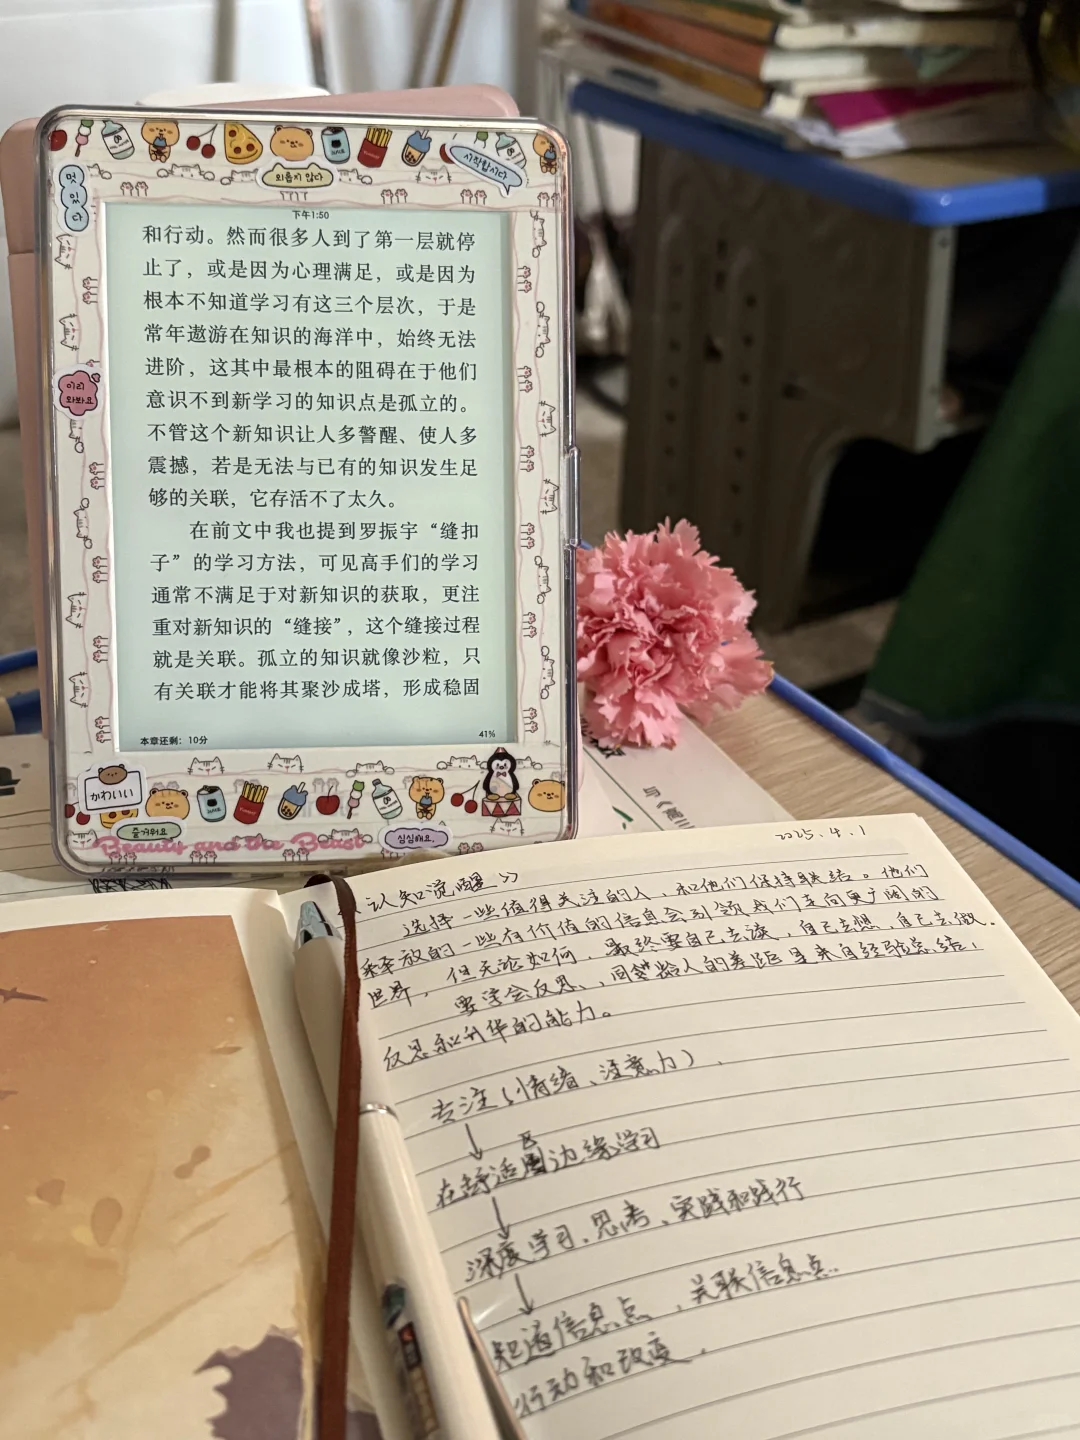 멋있다
외롭지 않다
시작합시다
이리 와봐요
下午1:50
和行动。然而很多人到了第一层就停
止了，或是因为心理满足，或是因为
根本不知道学习有这三个层次，于是
常年遨游在知识的海洋中，始终无法
进阶，这其中最根本的阻碍在于他们
意识不到新学习的知识点是孤立的。
不管这个新知识让人多警醒、使人多
震撼，若是无法与已有的知识发生足
够的关联，它存活不了太久。
在前文中我也提到罗振宇“缝扣
子”的学习方法，可见高手们的学习
通常不满足于对新知识的获取，更注
重对新知识的“缝接”，这个缝接过程
就是关联。孤立的知识就像沙粒，只
有关联才能将其聚沙成塔，形成稳固
本章还剩：10分
41%
かわいい
즐거워요
심심해요.
Beauty and the Beast
与《高三
2025.4.1
认知觉醒》
选择一些值得关注的人，和他们保持联结。他们
释放的一些有价值的信息会引领我们走向更广阔的
世界，但无论如何，最终要自己去读，自己去想，自己去做.
要学会反思、人的差距是来自经验总结，
反思和升华的能力。
专注（情绪、注意力）.
↓
在舒适区边缘学习
↓
深度学习、思考、实践和践行
↓
知道信息点，关联信息点.
行动和改变.